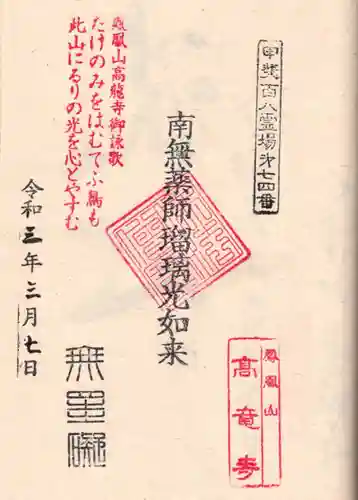 甲斐百八霊場第七四番
南無薬師瑠璃光如来
鳳凰山高龍寺御詠歌
たけのみをはむてふ鳥も
此山にるりの光を心とやすむ
令和三年三月七日
鳳凰山
高竜寺